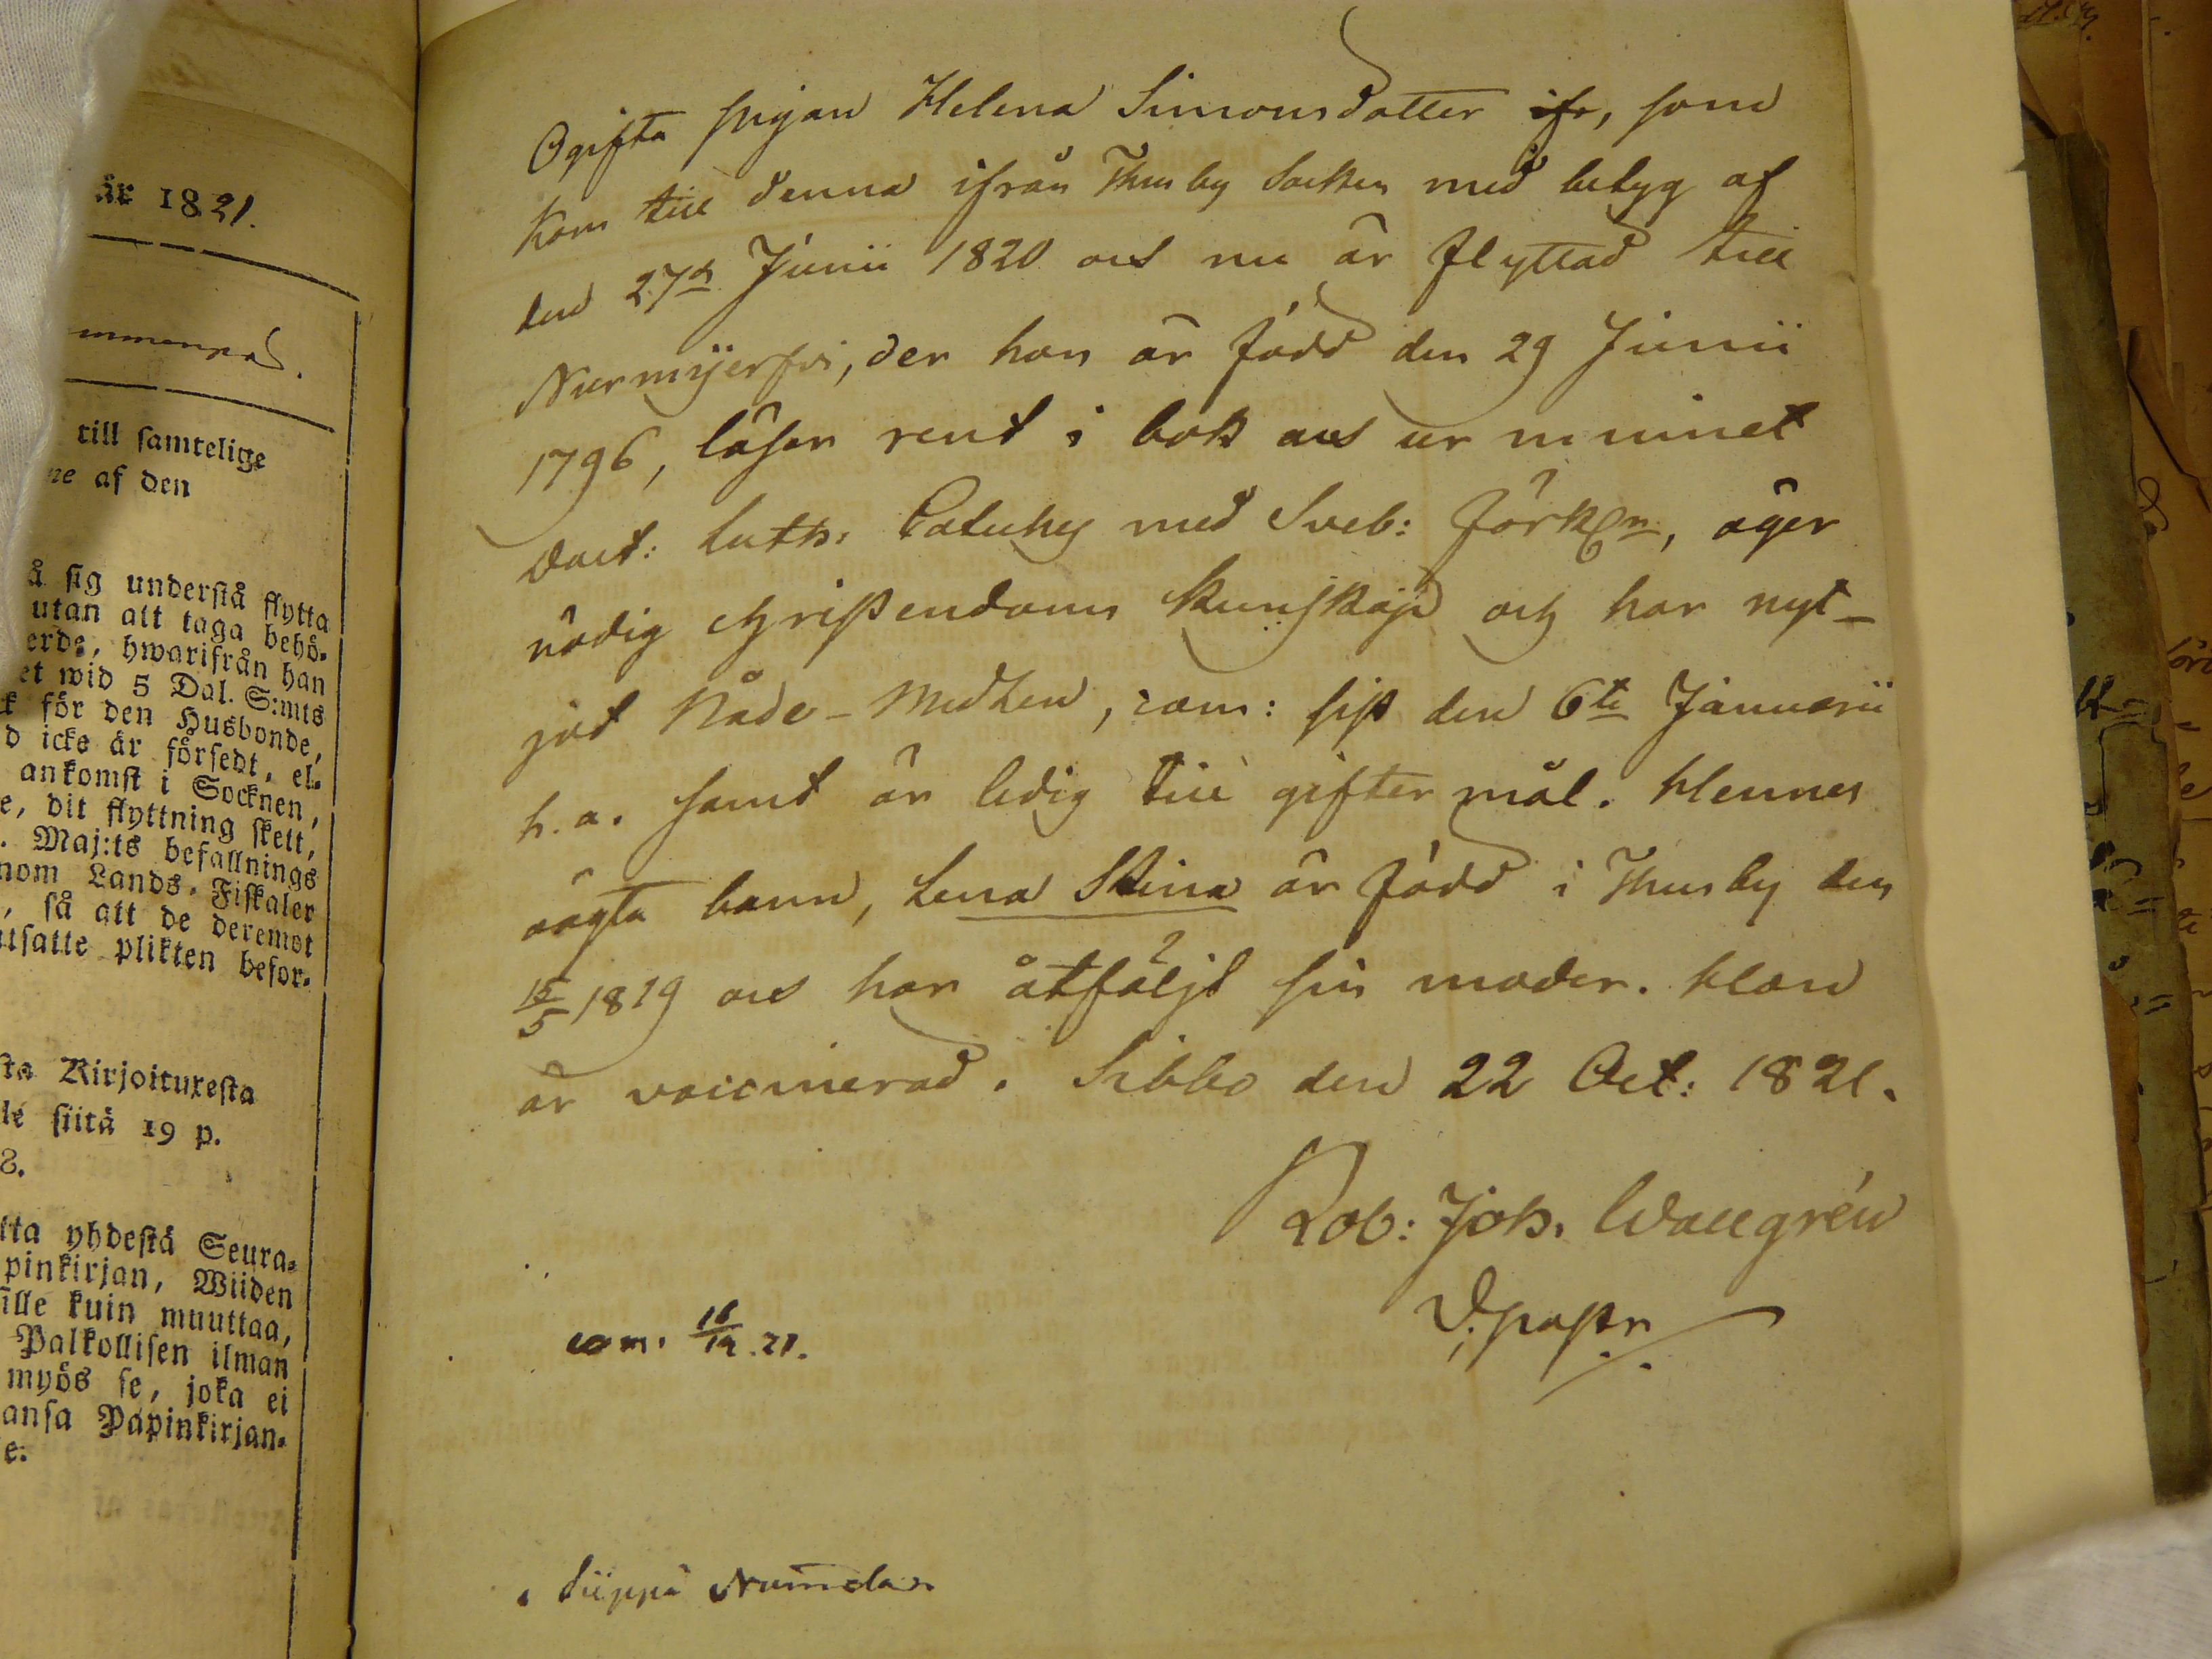 år 1821.
till samtelige
ne af den
å sig understå flytta
utan att taga behö-
erde, hwarifrån han
et wid 5 Dal. S:mts
k för den Husbonde,
d icke är försedt, el-
ankomst i Socknen,
e, dit flyttning skett,
. Maj:ts befallnings
nom Lands-Fiskaler
, så att de deremot
utsatte plikten befor-
sta Kirjoituxesta
le siitä 19 p.
8.
itta yhdestä Seura-
pinkirjan, Wiiden
sille kuin muuttaa,
Palkollisen ilman
myös se, joka ei
ansa Papinkirjan-
e.
Ogifta pigan Helena Simonsdotter ifr, som
kom till denna ifrån Thusby Socken med betyg af
den 27de Junii 1820 och nu är flyttad till
Nurmijerfvi, der hon är född den 29 Junii
1796, läser rent i bok och ur minnet
Doct: Luth: Cateches med Sveb: förkl:n, äger
nödig christendoms kunskap och har nyt-
jat Nåde-Medlen, com: sist den 6te Januarii
h.a. samt är ledig till giftermål. Hennes
oägta barn, Lena Stina är född i Thusby den
15/5 1819 och har åtföljt sin moder. Hon
är vaccinerad. Sibbo den 22 Oct: 1821.
Rob: Joh. Wallgrén
V. pastr
com. 16/12.21.
Numela